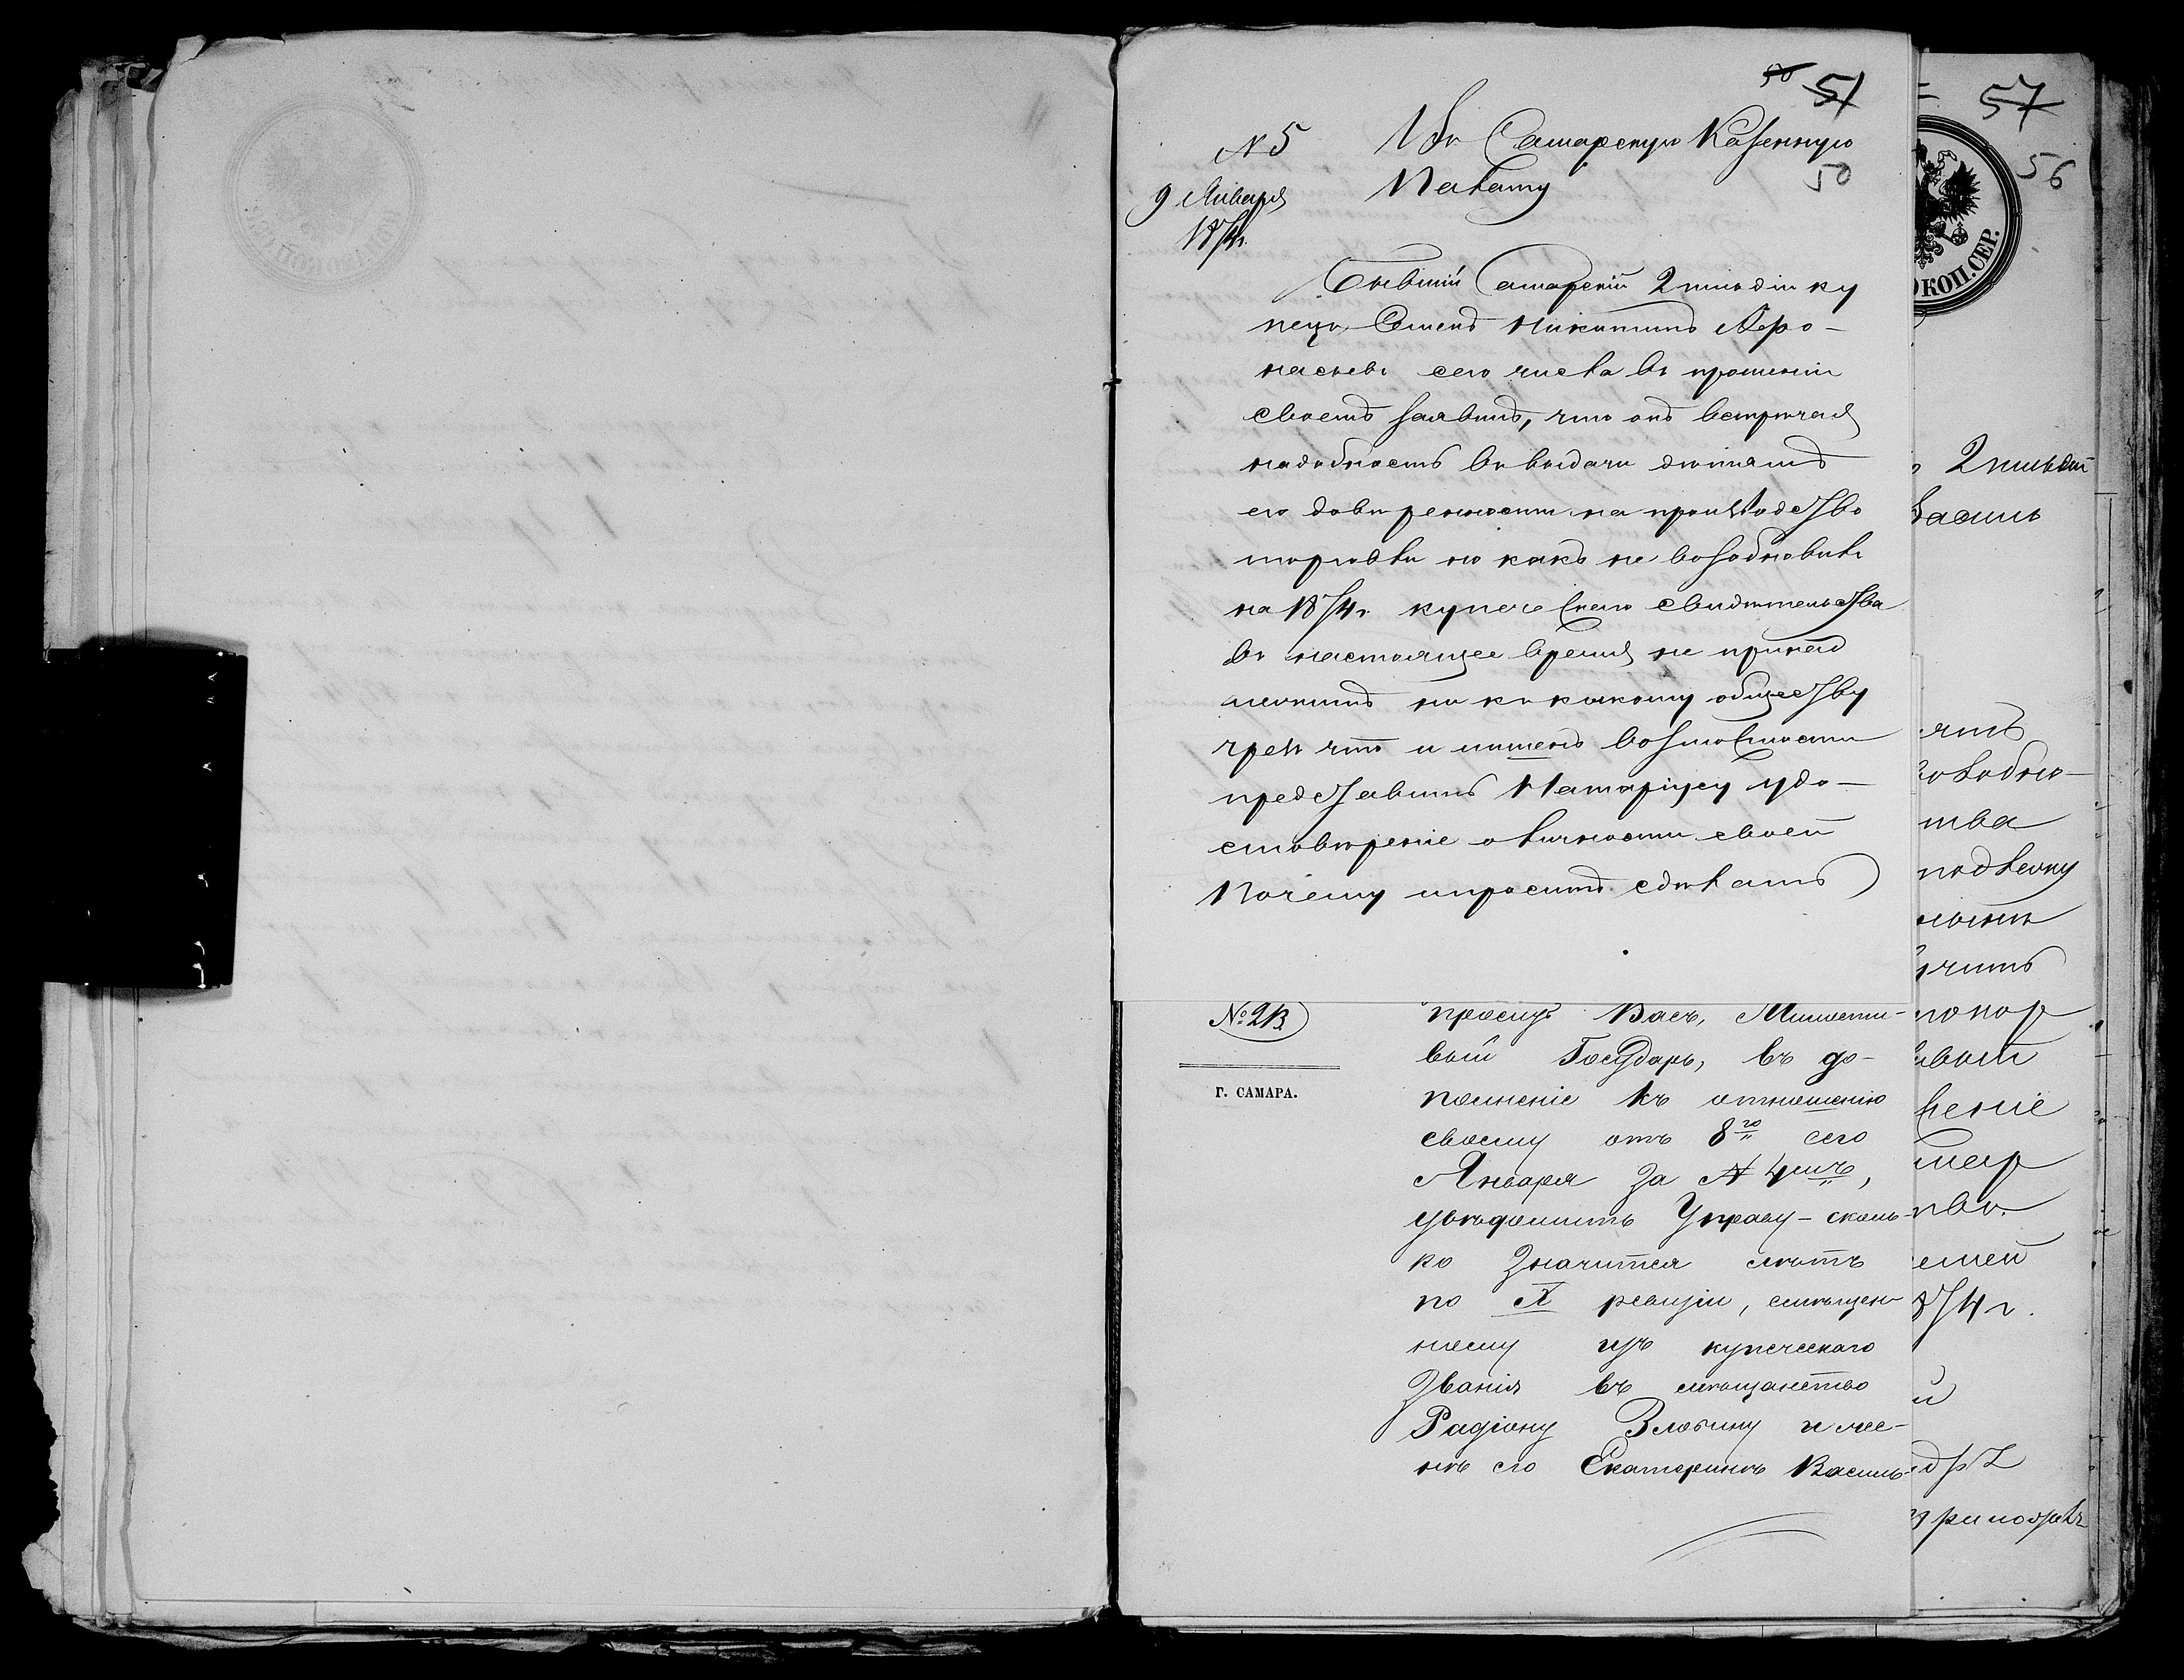 50 51
№ 5
9 Января
1874 г.
Въ Самарскую Казенную
50
Палату
Бывшій Самарскій 2 гильдіи ку
пецъ Семенъ Никитинъ Афо-
насьевъ сего числа въ прошеніи
своемъ заявилъ, что онъ встрѣчая
надобность въ выдачи дѣтямъ
его довѣренности на производство
торговли но какъ не возобновилъ
на 1874 г. купеческаго свидѣтельства
въ настоящее время не принад
лежитъ ни къ какому обществу
чрезъ что и лишенъ возможности
представить Натаріусу удо-
стовѣреніе о личности своей
Почему и проситъ сдѣлать
№ 213
Г. САМАРА.
проситъ Васъ, Милости-
вый Государь, въ до-
полненіе къ отношенію
своему отъ 8го сего
Января за № 4мъ,
увѣдомить Управу - сколь-
ко значится лѣтъ
по X ревизіи, смѣщен-
ному изъ купеческаго
званія въ мѣщанство
Радіону Злобину и же-
нѣ его Екатеринѣ Василь-
57
56
КОП. СЕР.
2 гильдіи
Васили
ять
возобно-
ства
подлежу
чить
вый
леніе
емей
874 г.
й